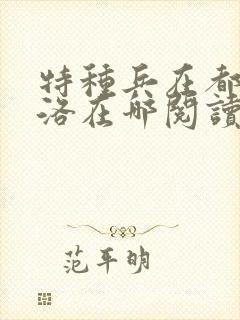 特种兵在都
洛在哪阅读
范平明